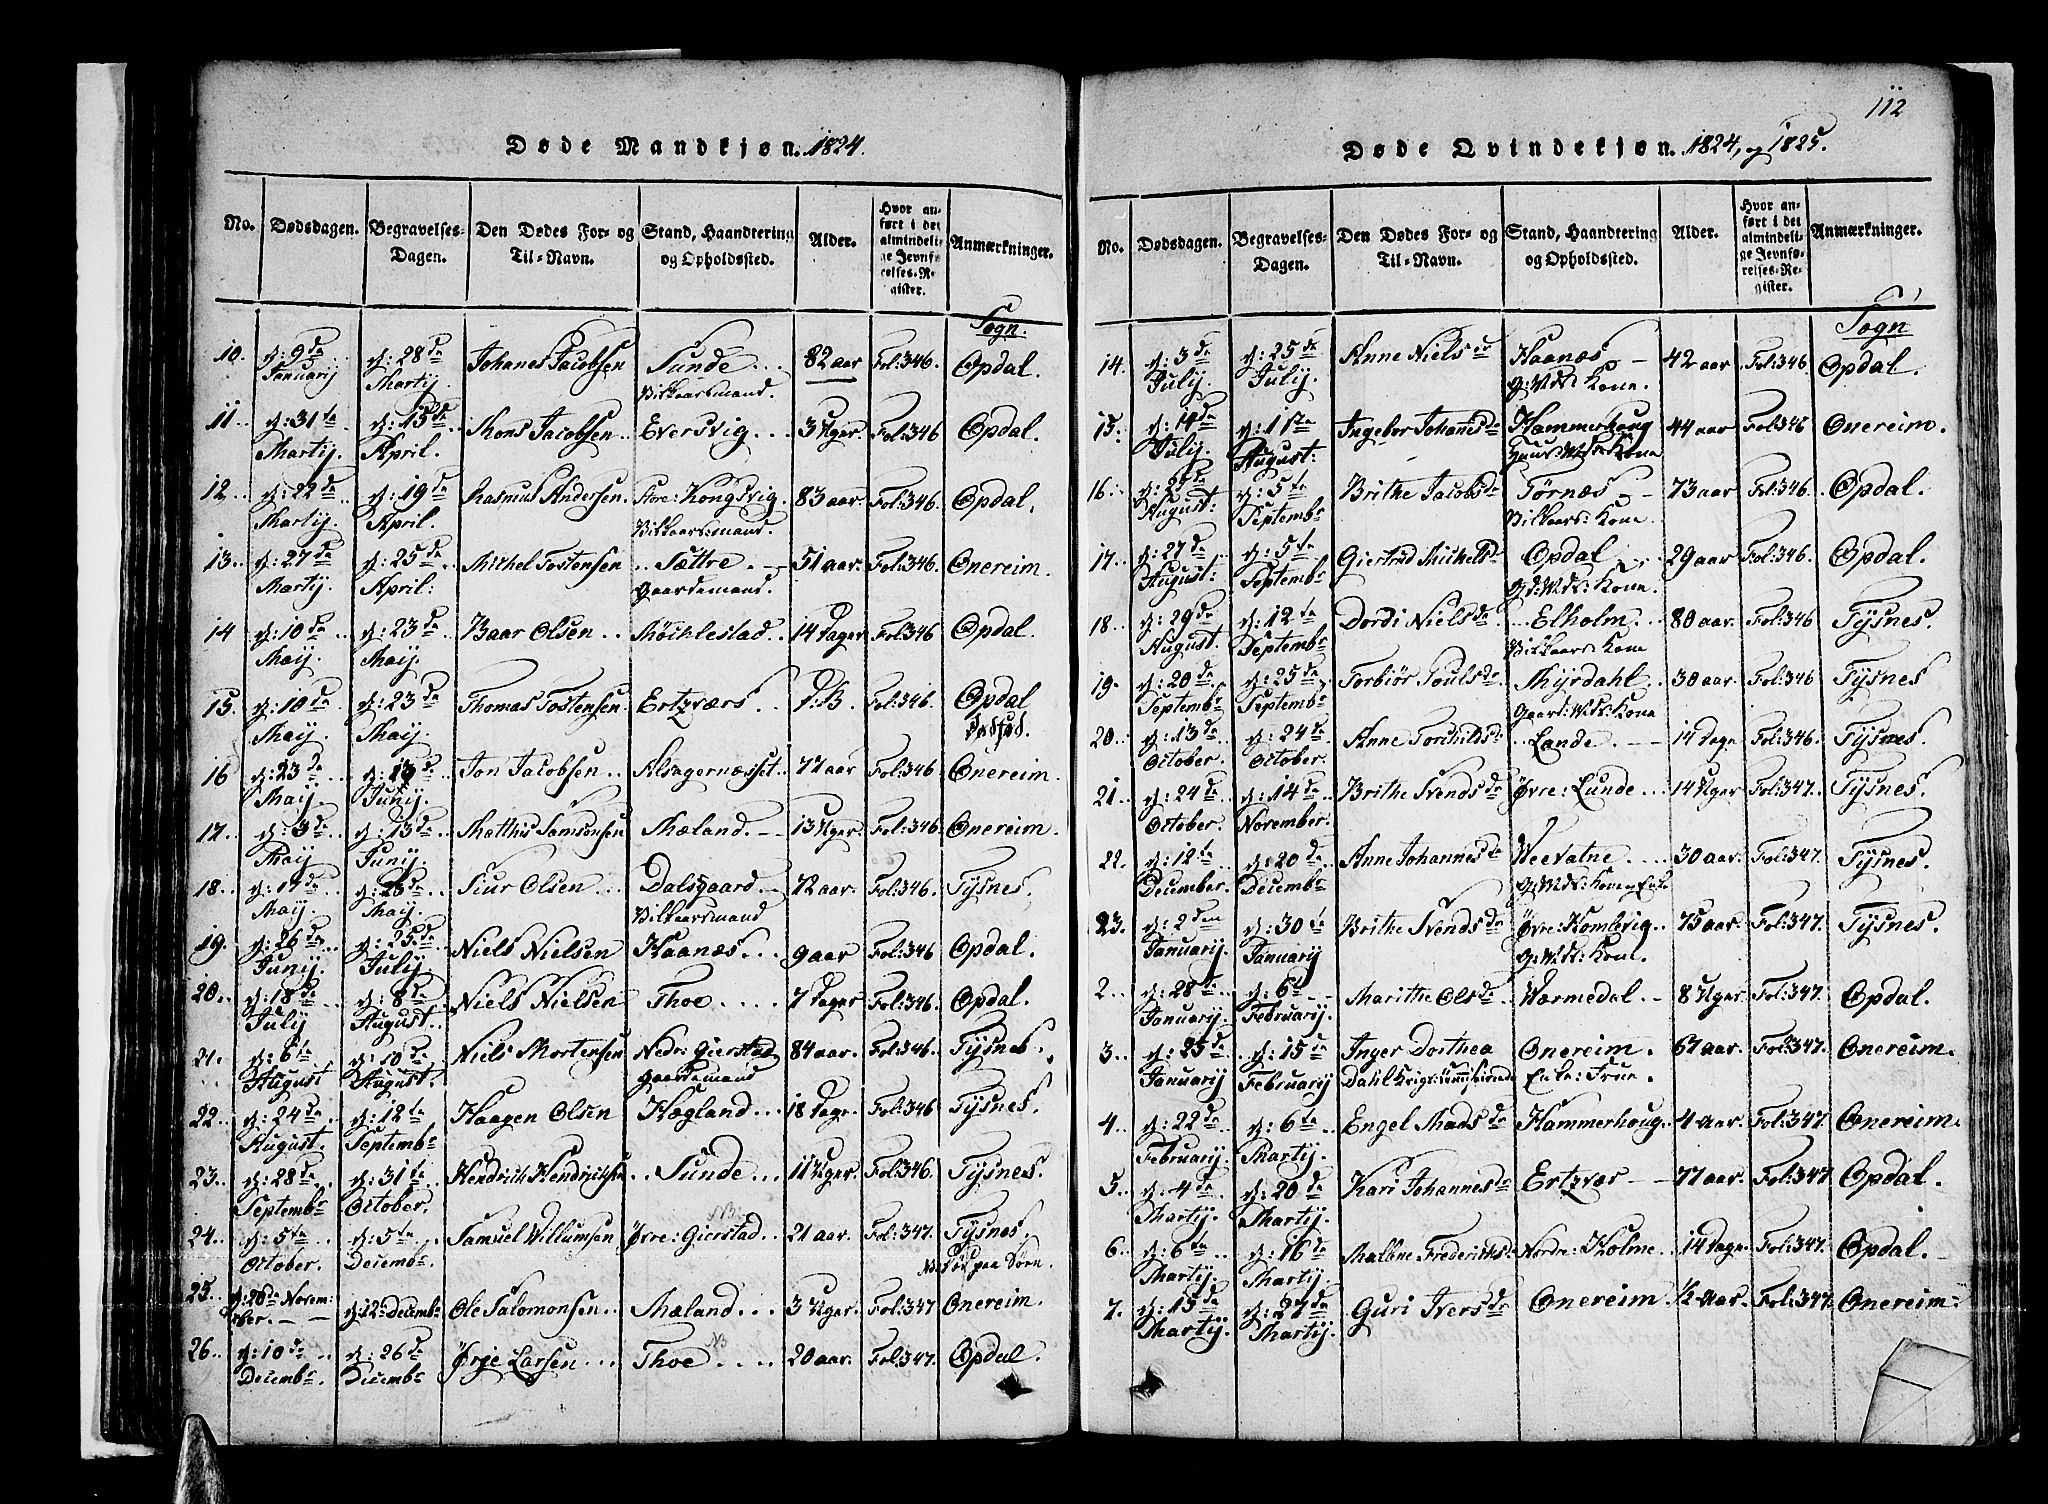 112
Døde Mandkjøn. 1824.
No. Dødsdagen. Begravelses-Dagen. Den Dødes For- og Til-Navn. Stand, Haandtering og Opholdssted. Alder. Hvor anført i det almindelige Jevnførelses-Register. Anmærkninger.
Sogn.
10. d: 9de Januarij d: 28de Martij. Johanes Jacobsen Sunde... Vilkaarsmand. 82 aar Fol:346. Opdal.
11.. d: 31te Martij. d: 15de April. Mons Jacobsen.. Eversvig... 3 Uger. Fol:346 Opdal.
12.. d: 22de Martij. d: 19de April. Rasmus Andersen. Store: Kongsvig. Vilkaarsmand. 83 aar Fol:346. Opdal.
13.. d: 27de Martij. d: 25de April: Michel Tostensen .. Sættre.-- gaardemand. 51 aar. Fol:346. Onereim.
14 d: 10de.. Maij. d: 23de.. Maij. Baar Olsen.. Möcklestad.. 14 Dager Fol:346 Opdal.
15. d: 10de Maij. d: 23de Maij. Thomas Tostensen Ertzværs.. Fol:346. Opdal
16 d: 23de.. Maij. d: 13de Junij. Jon Jacobsen.. Alsagernæsset.. 77 aar Fol:346 Onereim.
17.. d: 3de.. Maij d: 13de.. Junij. Matthis Samsonsen Mæland.-- 13 Uger. Fol:346 Onereim.
18.. d: 17de.. Maij. d: 23de.. Maij. Siur Olsen... Dalsgaard.. Vilkaarsmand 72 aar. Fol:346. Tÿsnes.
19. d: 26de.. Junij. d: 25.de Julij. Niels Nielsen Haanæs... 9 aar Fol:346 Opdal.
20.. d: 18de Julij d: 8de August.. Niels Nielsen Thoe.... 7 Dager Fol:346 Opdal.
21. d: 6te August d: 10de August. Niels Mortensen Nedr: Gierstad gaardemand 84 aar. Fol:346. Tÿsnes.
22.. d: 24de August. d: 12te Septembr Haagen Olsen Hægland... 18 Dage. Fol:346 Tÿsnes.
23.. d: 28de Septembr d: 31te October. Hendrich Hendrichsen .. Sunde... 11 Uger. Fol:346. Tÿsnes.
24.. d: 5te October. d: 5te Decembr. Samuel Willumsen Øvre: Gierstad. 21 aar. Fol:347. Tÿsnes. NB. Død paa Søen.
25.. d: 28de November.-- d: 12te Decembr Ole Salomonsen.. Mæland... 3 Uger. Fol:347 Onereim.
26.. d: 10de Decembr. d: 26de Decembr Ørje Larsen... Thoe.... NB 20 aar. Fol:347. Opdal.
Døde Qvindekjøn. 1824, og 1825.
No. Dødsdagen. Begravelses-Dagen. Den Dødes For- og Til-Navn. Stand, Haandtering og Opholdssted. Alder. Hvor anført i det almindelige Jevnførelses-Register. Anmærkninger.
Sogn
14. d: 3de Julij. d: 25de Julij. Anne Nielsdr Haanæs.- G:Mds: Kone. 42 aar Fol:346 Opdal.
15. d: 14de Julij. d: 1ste August: Ingebor Johannesdr Hammerhoug Kone 44 aar Fol:346 Onereim.
16.. August: d: 5te Septembr Brithe Jacobsdr Törnæs.- Vilkaars: Kone. 73 aar Fol:346. Opdal.
17.. d: 27de.. August: d: 5te Septembr Giertrud Michelsdr Opdal.. Gd:Mds: Kone. 29 aar Fol:346. Opdal.
18.. d: 29de August. d: 12te Septembr Dordi Nielsdr .. Elholm.. Vilkaars: Kone 80 aar. Fol:346 Tÿsnes.
19. d: 20de Septembr d: 25de Septembr Torbiör Poulsdr. Mÿrdahl.. Gaard:Mds:Kone 30 aar. Fol:346 Tÿsnes
20.. d: 13de October. d: 24de October. Anne Torchildsdr .. Lande.-- 14 Dage Fol:346. Tÿsnes.
21.. d: 24de October. d: 14de November. Brithe Svendsdr Øvre: Lunde... 14 Uger Fol:347.. Tÿsnes.
22. d: 12te December. d: 20de Decembr Anne Johannesdr Weevatne.... 30 aar. Fol:347. Tÿsnes.
23. d: 2den Januarij. d: 30te Januarij Brithe Svendsdr Øvre: Hombvig.. G:Mds: Kone. 75 aar. Fol:347. Tÿsnes.
2.. d: 28de Januarij. d: 6te Februarij. Marithe Olsdr. Warmedal.- 8 Uger Fol:347. Opdal.
3.. d: 25de Januarij d: 15de Februarij Inger Dorthea Dahl Onereim. Enke: Frue. 67 aar. Fol:347. Onereim.
4.. d: 22de Februarij. d: 6te.. Martij. Engel Madsdr Hammerhoug. 4 Aar. Fol:347. Onereim.
5.. d: 4de.. Martij. d: 20de Martij. Kari Johannesdr Ertzvær-- 77 aar. Fol:347 Opdal.
6.. d: 6te.. Martij. d: 16de Martij. Malene Frederiksdr Nordre: Holme.. 14 Dage. Fol:347. Opdal.
7. d: 15de Martij. d: 27de Martij. Guri Iversdr Onereim 1/2 Aar. Fol:347. Onereim.